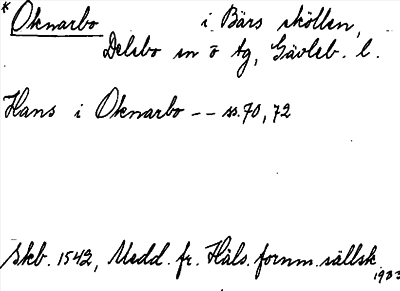 * Oknarbo i Bärs sköllen,
Delsbo sn o tg, Gävleb. l.
Hans i Oknarbo -- ss. 70, 72
Skb. 1542, Medd. fr. Häls. fornm. sällsk.
1933